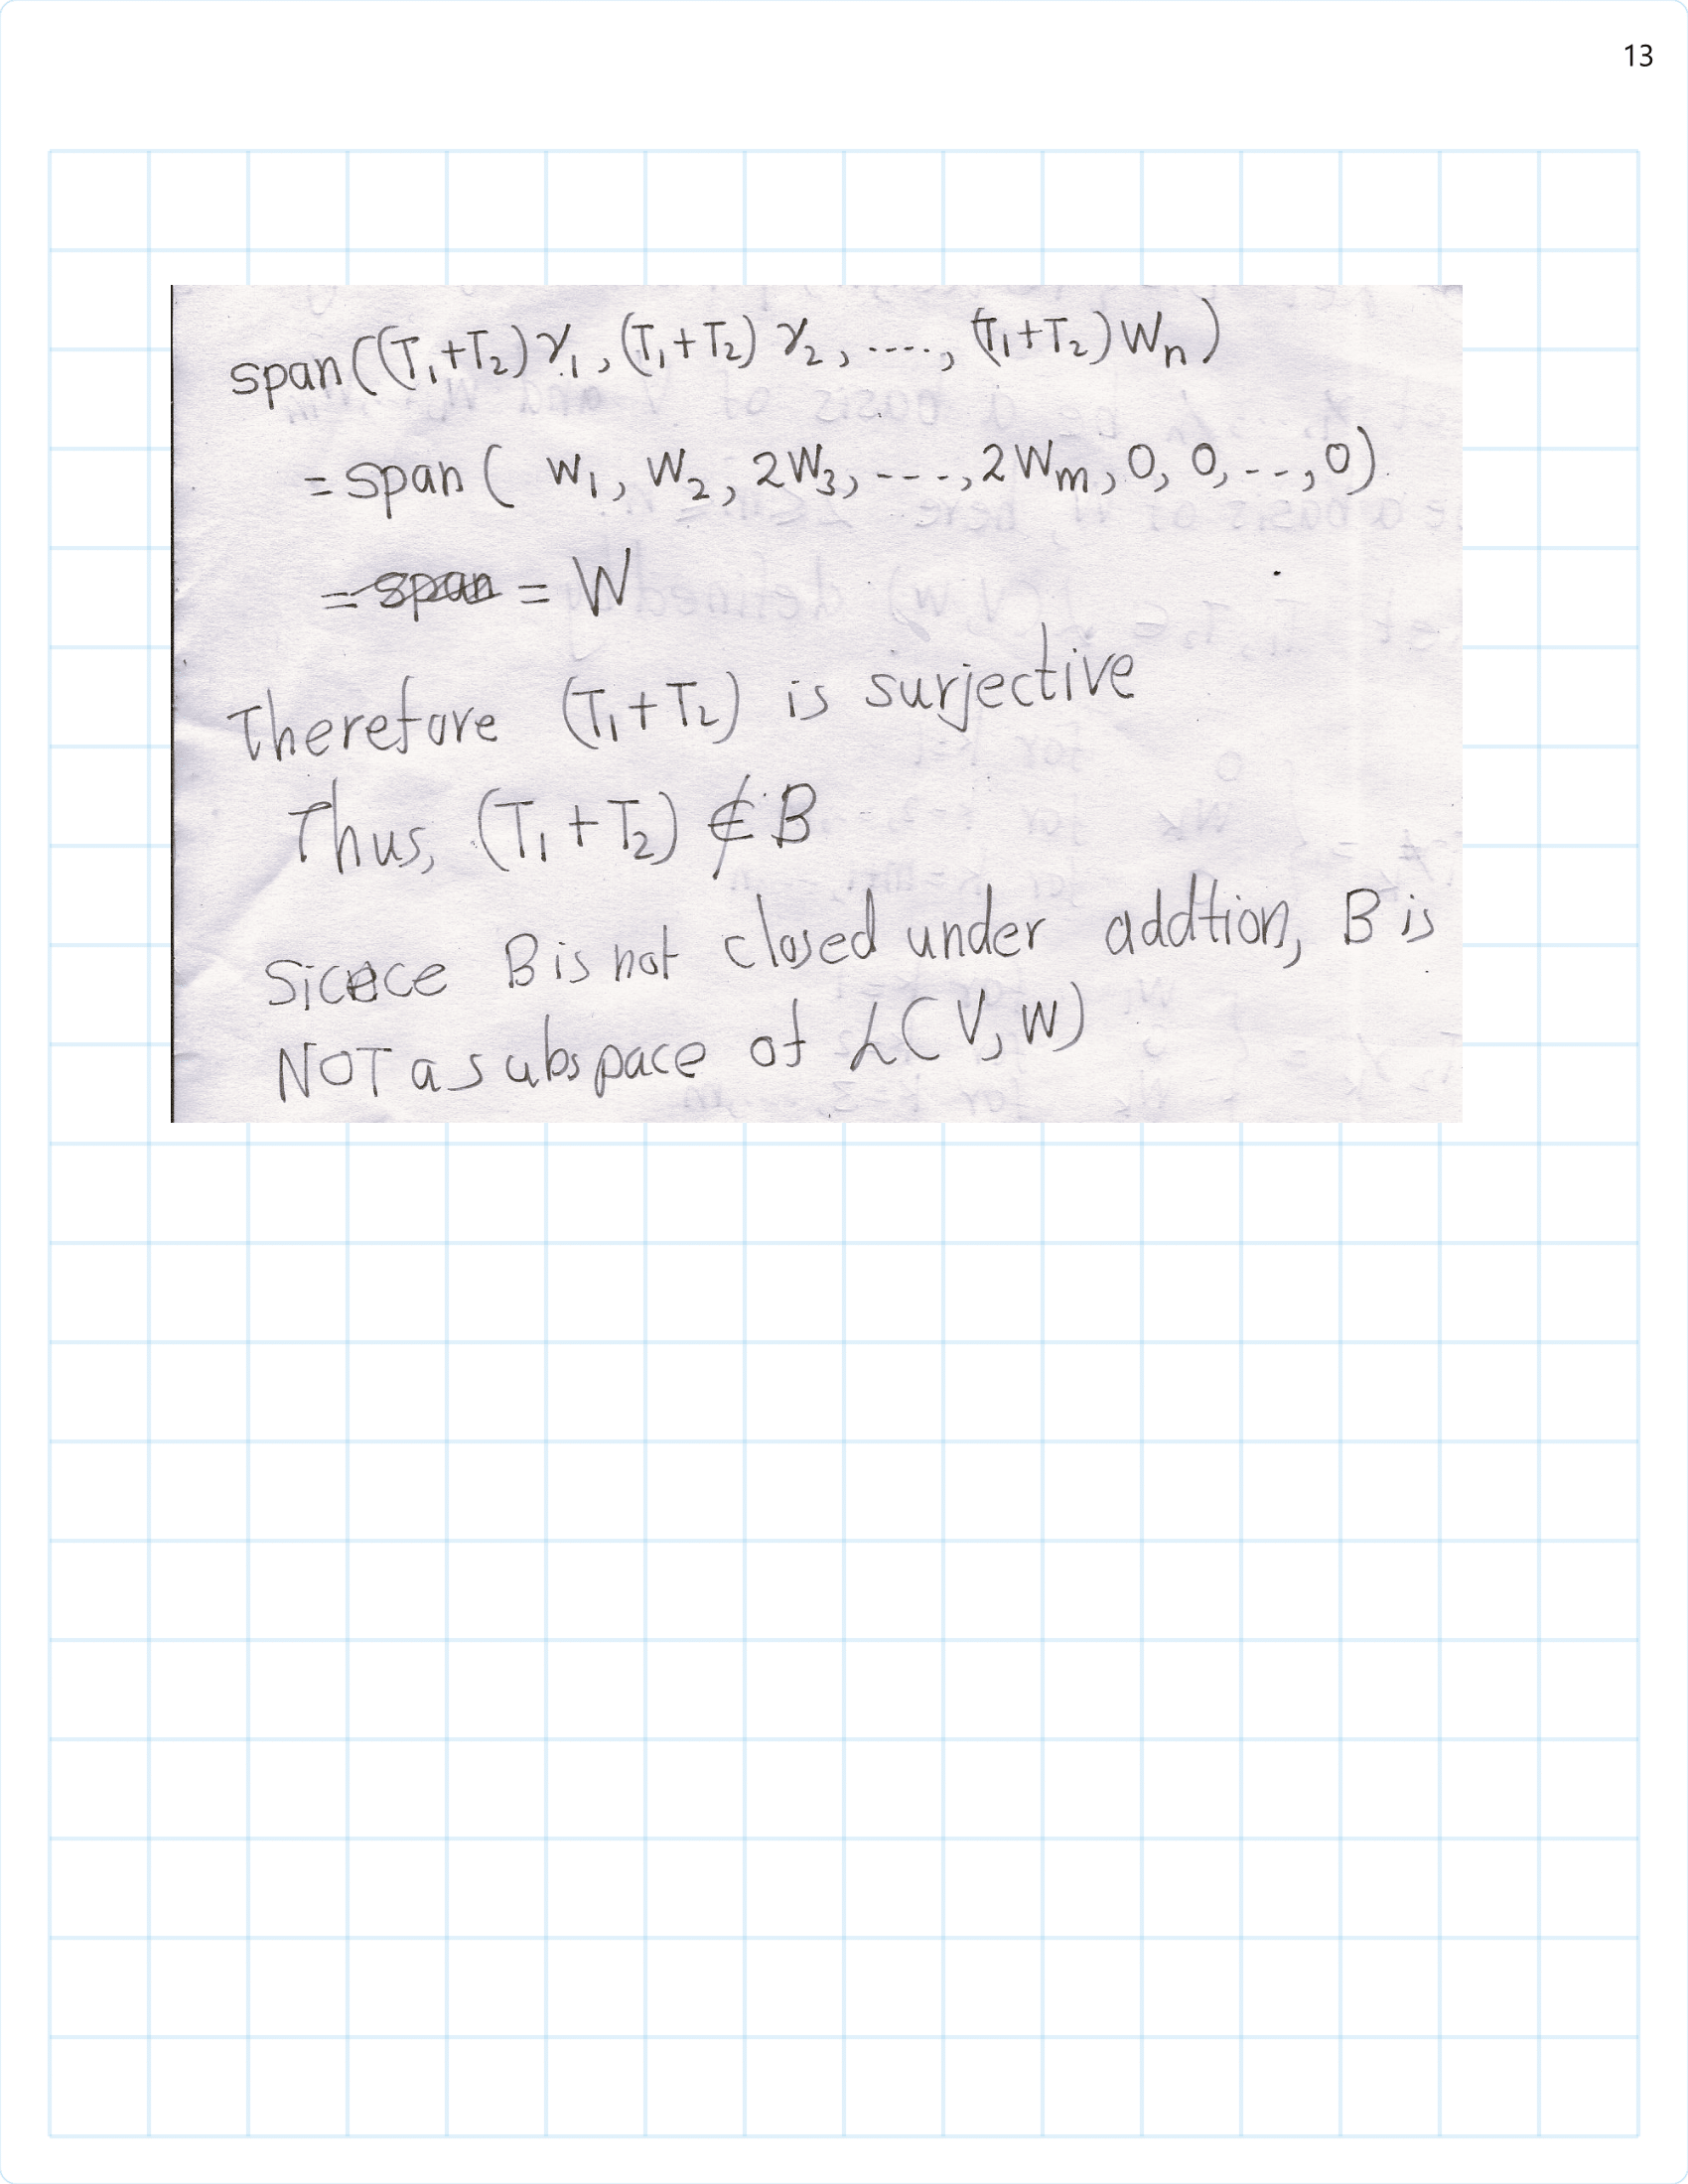 13
span((T₁+T₂)γ₁, (T₁+T₂) γ₂, ...., (T₁+T₂)Wₙ)
= span( W₁, W₂, 2W₃, ...., 2Wₘ, 0, 0, .., 0)
= span = W
Therefore (T₁+T₂) is surjective
Thus, (T₁+T₂) ∉ B
Sicnce B is not closed under addtion, B is
NOT a subspace of L(V, W)